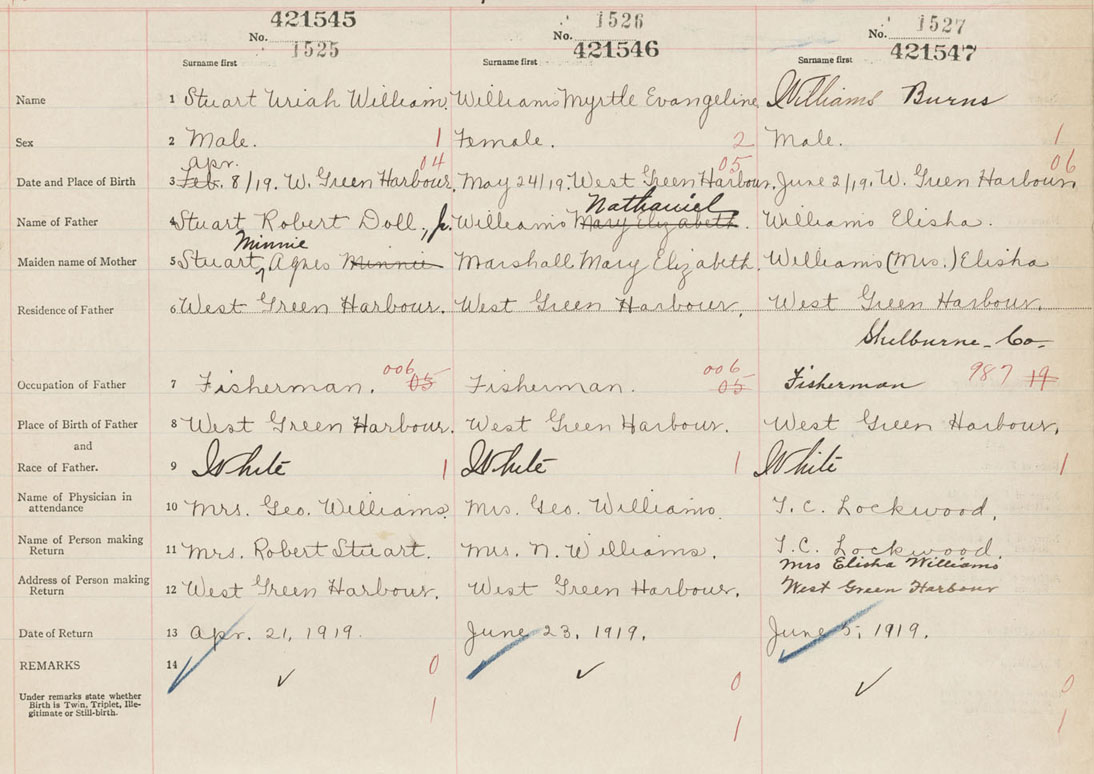 421545 1526 1527
No. 1525 No. 421546 No. 421547
Surname first Surname first Surname first
Name 1 Stuart Uriah William. Williams Myrtle Evangeline Williams Burns
Sex 2 Male. 1 Female. 2 Male. 1
Apr. 04 05 06
Date and Place of Birth 3 Feb. 8/19. W. Green Harbour. May 24/19. West Green Harbour. June 2/19. W. Green Harbour.
Nathaniel
Name of Father 4 Stuart Robert Doll, Jr. Williams Mary Elizabeth. Williams Elisha.
Minnie
Maiden name of Mother 5 Stuart, Agnes Minnie Marshall Mary Elizabeth. Williams (Mrs.) Elisha
Residence of Father 6 West Green Harbour. West Green Harbour. West Green Harbour.
Shelburne Co.
006 006
Occupation of Father 7 Fisherman. 05 Fisherman. 05 Fisherman 987 19
Place of Birth of Father 8 West Green Harbour. West Green Harbour. West Green Harbour.
and
Race of Father. 9 White 1 White 1 White 1
Name of Physician in
attendance 10 Mrs. Geo. Williams. Mrs. Geo. Williams. T. C. Lockwood.
Name of Person making
Return 11 Mrs. Robert Stuart. Mrs. N. Williams. T. C. Lockwood.
Mrs Elisha Williams
Address of Person making
Return 12 West Green Harbour. West Green Harbour. West Green Harbour
Date of Return 13 Apr. 21, 1919. June 23, 1919. June 5, 1919.
REMARKS 14 0 0 0
Under remarks state whether
Birth is Twin, Triplet, Ille-
gitimate or Still-birth. 1 1 1